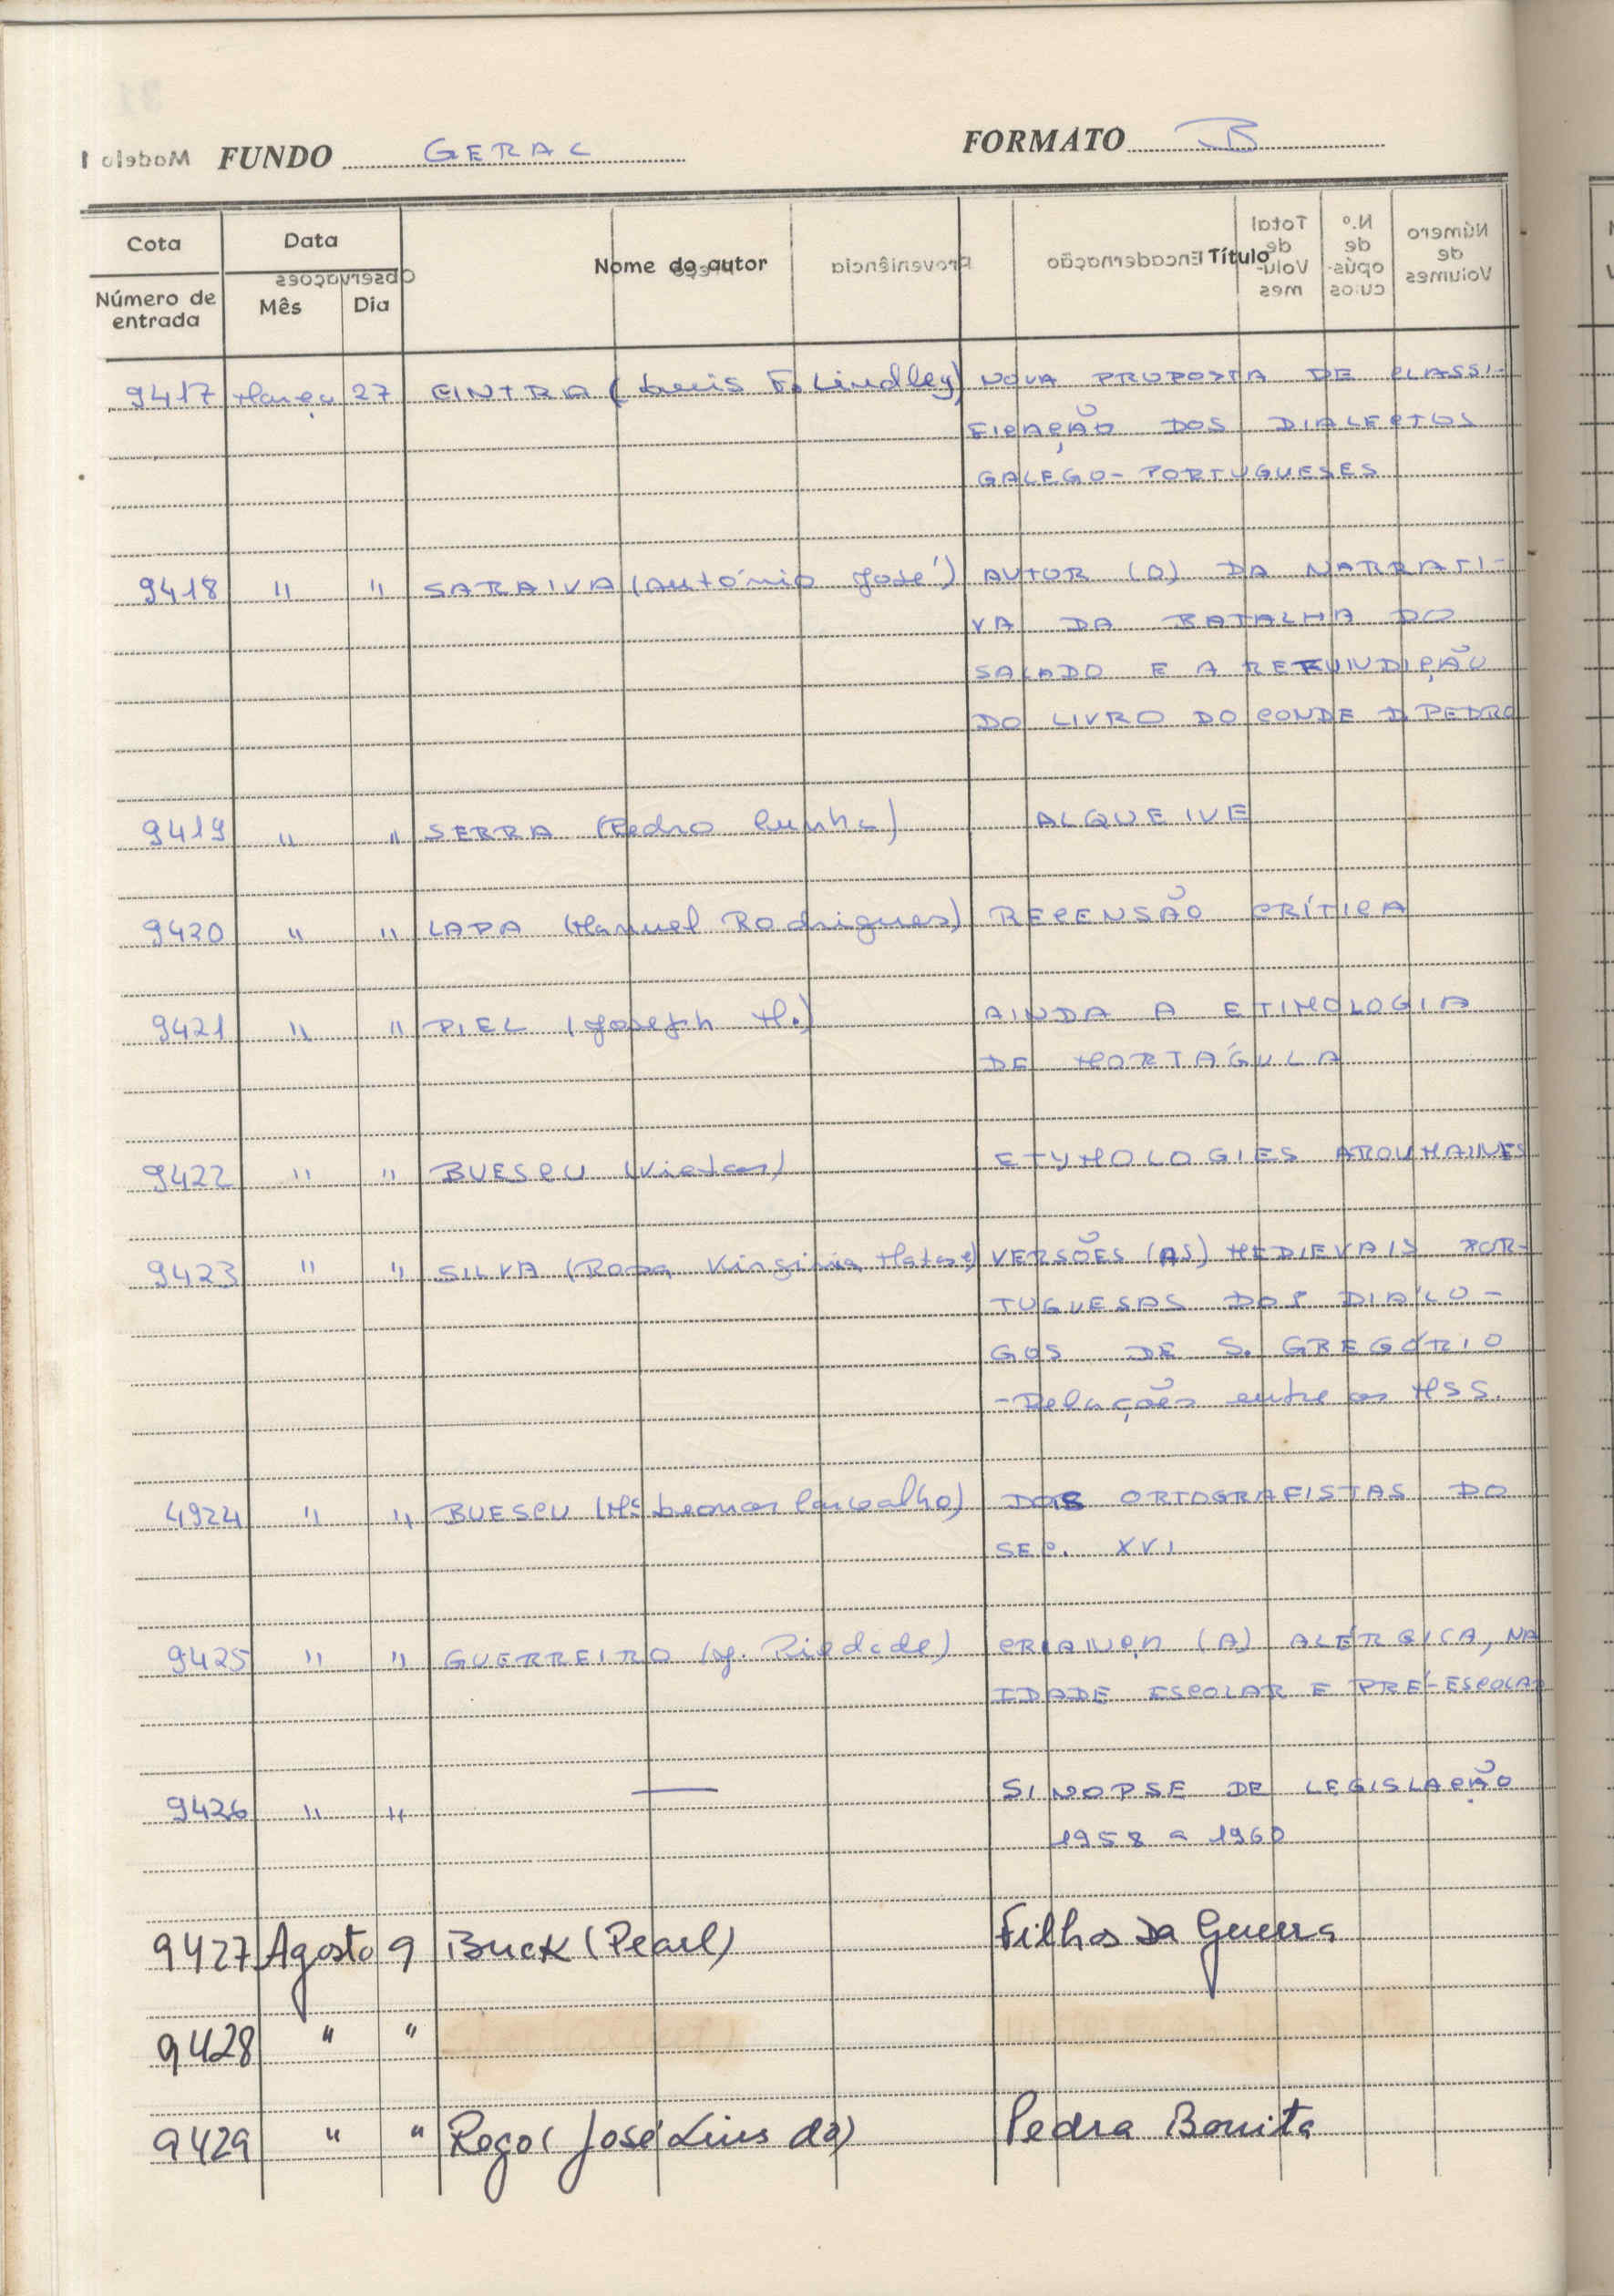 FUNDO GERAL FORMATO B
Modelo 1
Cota Data Nome do autor Título
Número de entrada Mês Dia
Observações Preço Proveniência Encadernação Total de Volumes N.º de opúsculos Número de Volumes
9417 Março 27 CINTRA (Luis F. Lindley) NOVA PROPOSTA DE CLASSI-
FICAÇÃO DOS DIALECTOS
GALEGO-PORTUGUESES
9418 " " SARAIVA (António José) AUTOR (O) DA NARRATI-
VA DA BATALHA DO
SALADO E A REFUNDIÇÃO
DO LIVRO DO CONDE D. PEDRO
9419 " " SERRA (Pedro Cunha) ALQUEIVE
9420 " " LAPA (Manuel Rodrigues) RECENSÃO CRÍTICA
9421 " " PIEL (Joseph M.) AINDA A ETIMOLOGIA
DE MORTÁGULA
9422 " " BUESCU (Victor) ETYMOLOGIES AROUMAINES
9423 " " SILVA (Rosa Virginia Matos) VERSÕES (AS) MEDIEVAIS POR-
TUGUESAS DOS DIÁLO-
GOS DE S. GREGÓRIO
-Relações entre os MSS.
4924 " " BUESCU (Mª Leonor Carvalho) DOIS ORTOGRAFISTAS DO
SEC. XVI
9425 " " GUERREIRO (J. Piedade) CRIANÇA (A) ALÉRGICA, NA
IDADE ESCOLAR E PRÉ-ESCOLAR
9426 " " — SINOPSE DE LEGISLAÇÃO
1958 a 1960
9427 Agosto 9 Buck (Pearl) Filhos Da Guerra
9428 " "
9429 " " Rego (José Lins do) Pedra Bonita